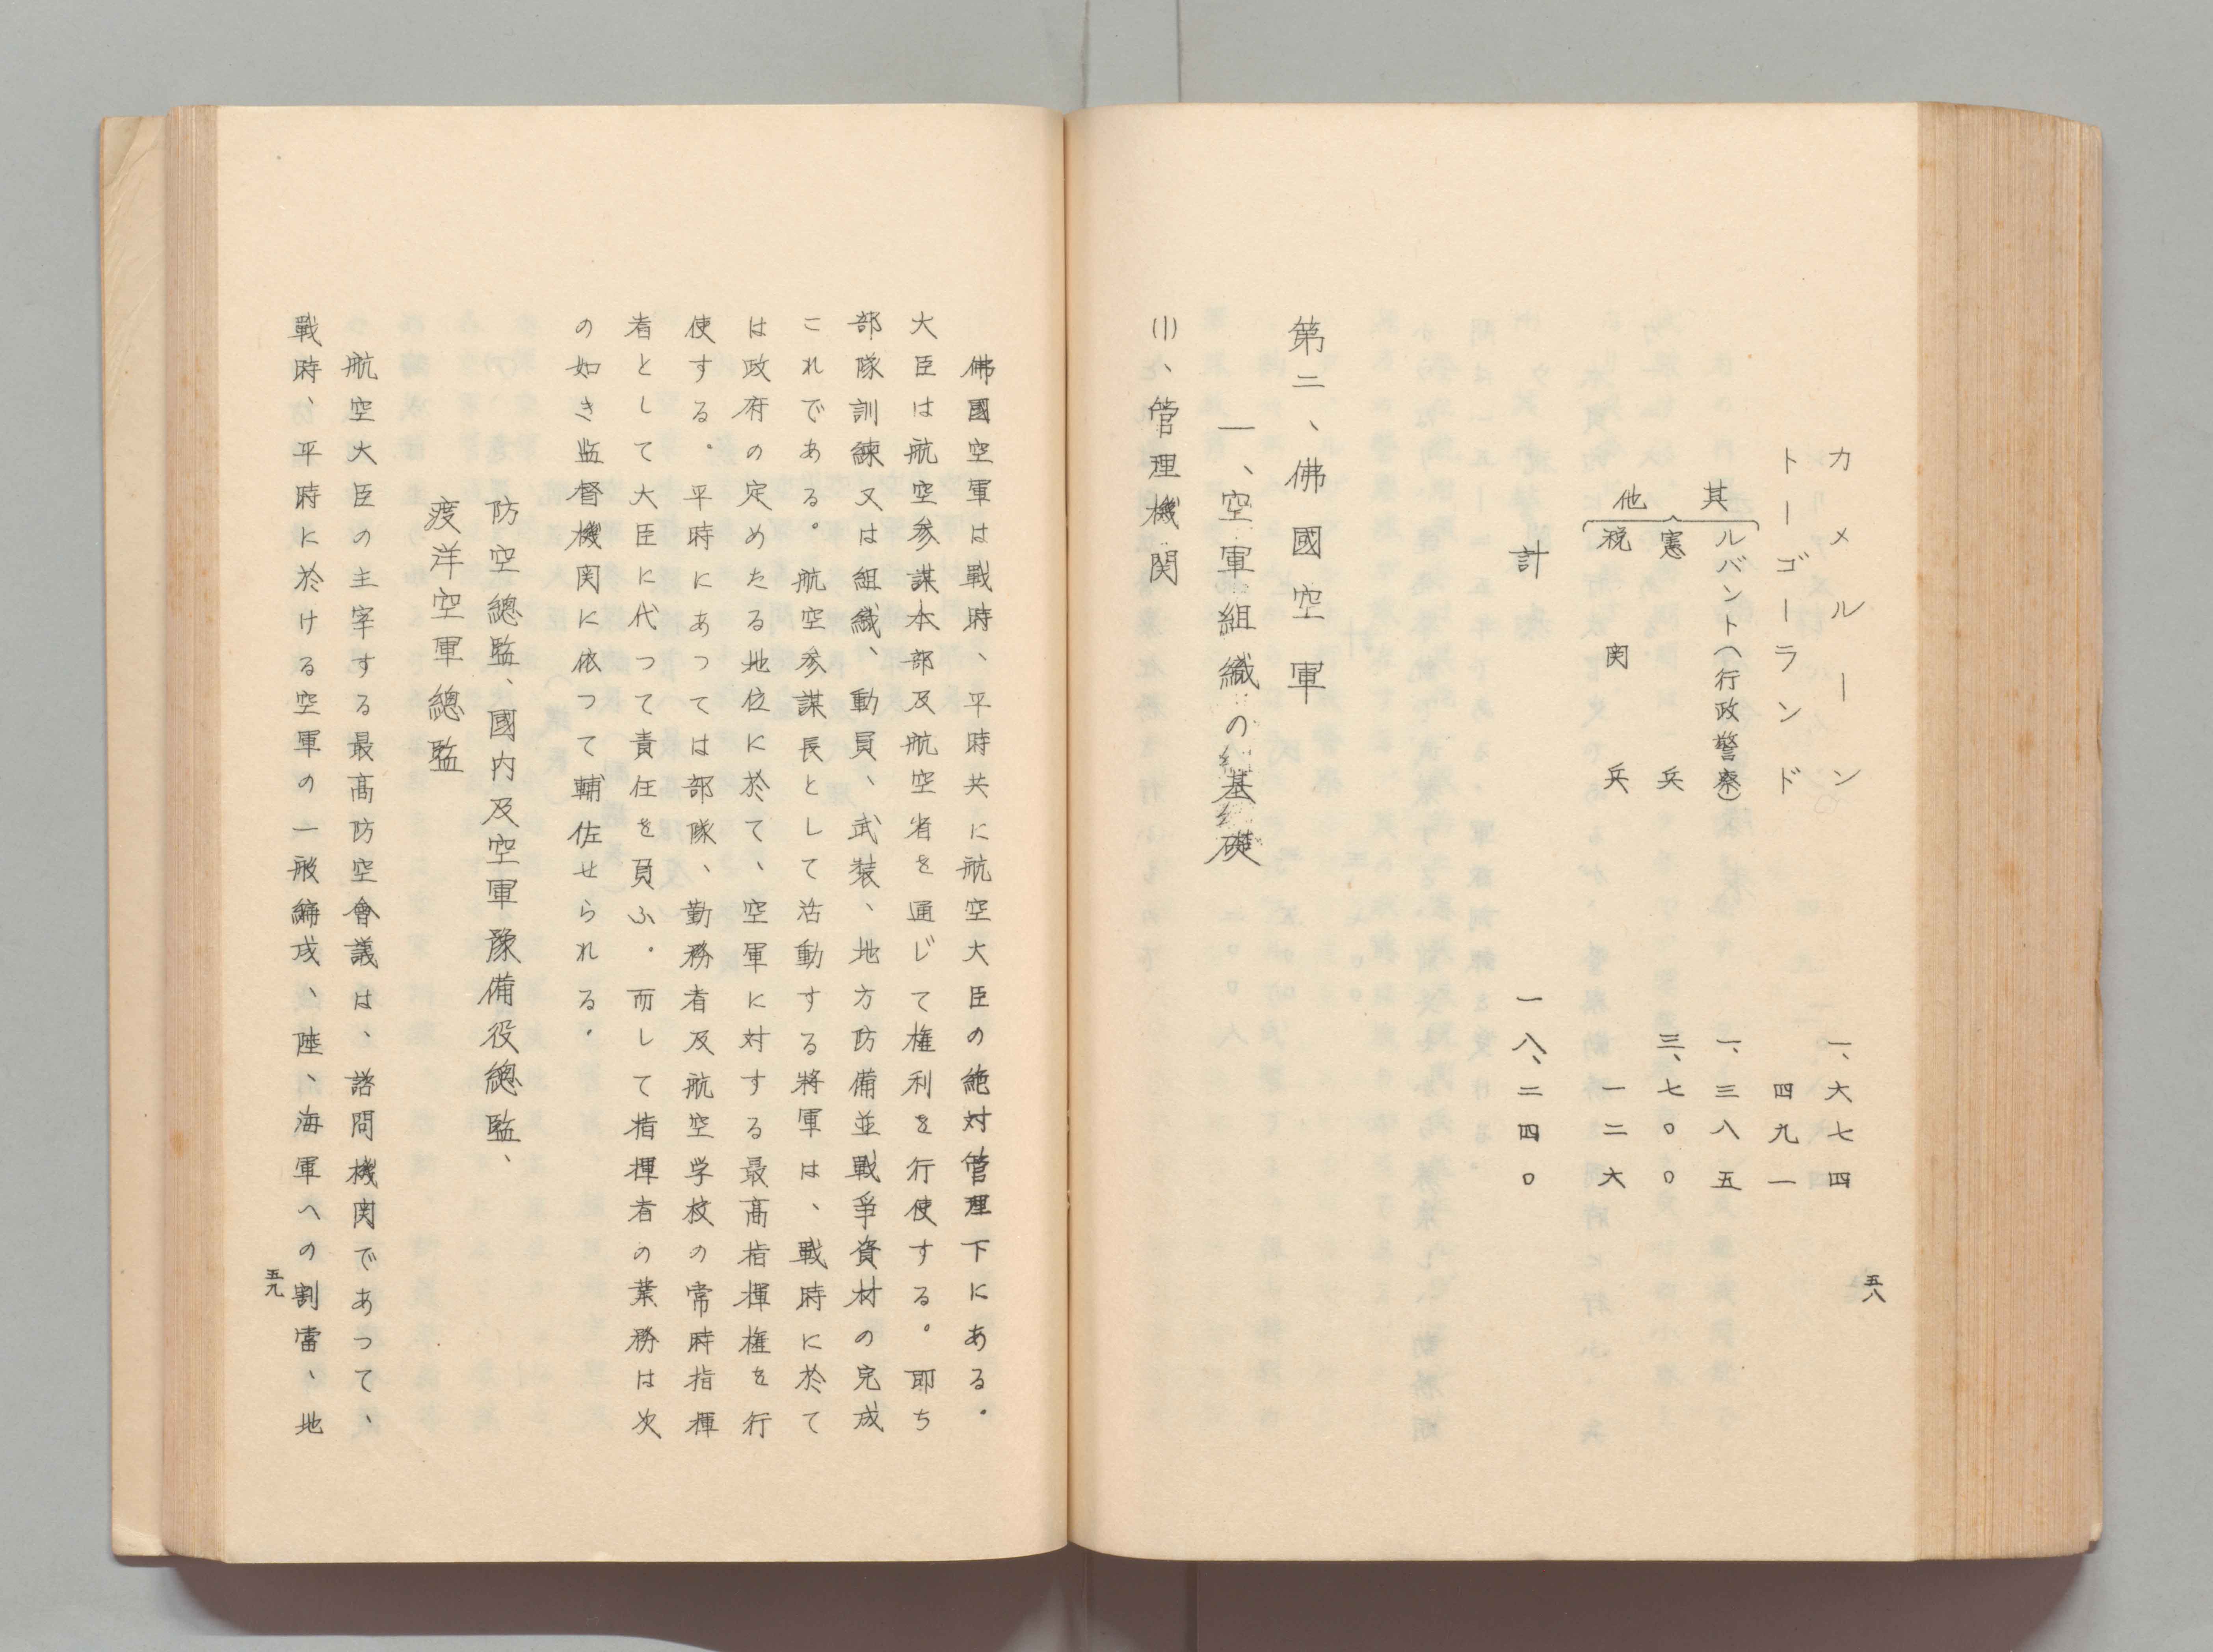 カメルーン 一、六七四
トーゴーランド 四九一
其他
ルバント(行政警察) 一、三八五
憲兵 三、七〇〇
税関兵 一二六
計 一八、二四〇
第二、佛國空軍
一、空軍組織の基礎
(1)、管理機関
五八
佛國空軍は戰時、平時共に航空大臣の絶対管理下にある。
大臣は航空参謀本部及航空省を通じて権利を行使する。即ち
部隊訓練又は組織、動員、武裝、地方防備並戰爭資材の完成
これである。航空参謀長として活動する將軍は、戰時に於て
は政府の定めたる地位に於て、空軍に対する最高指揮権を行
使する。平時にあつては部隊、勤務者及航空学校の常時指揮
者として大臣に代つて責任を負ふ。而して指揮者の業務は次
の如き監督機関に依つて輔佐せられる。
防空總監、國内及空軍豫備役總監、
渡洋空軍總監
航空大臣の主宰する最高防空會議は、諮問機関であつて、
戰時、平時に於ける空軍の一般編成、陸、海軍への割當、地
五九